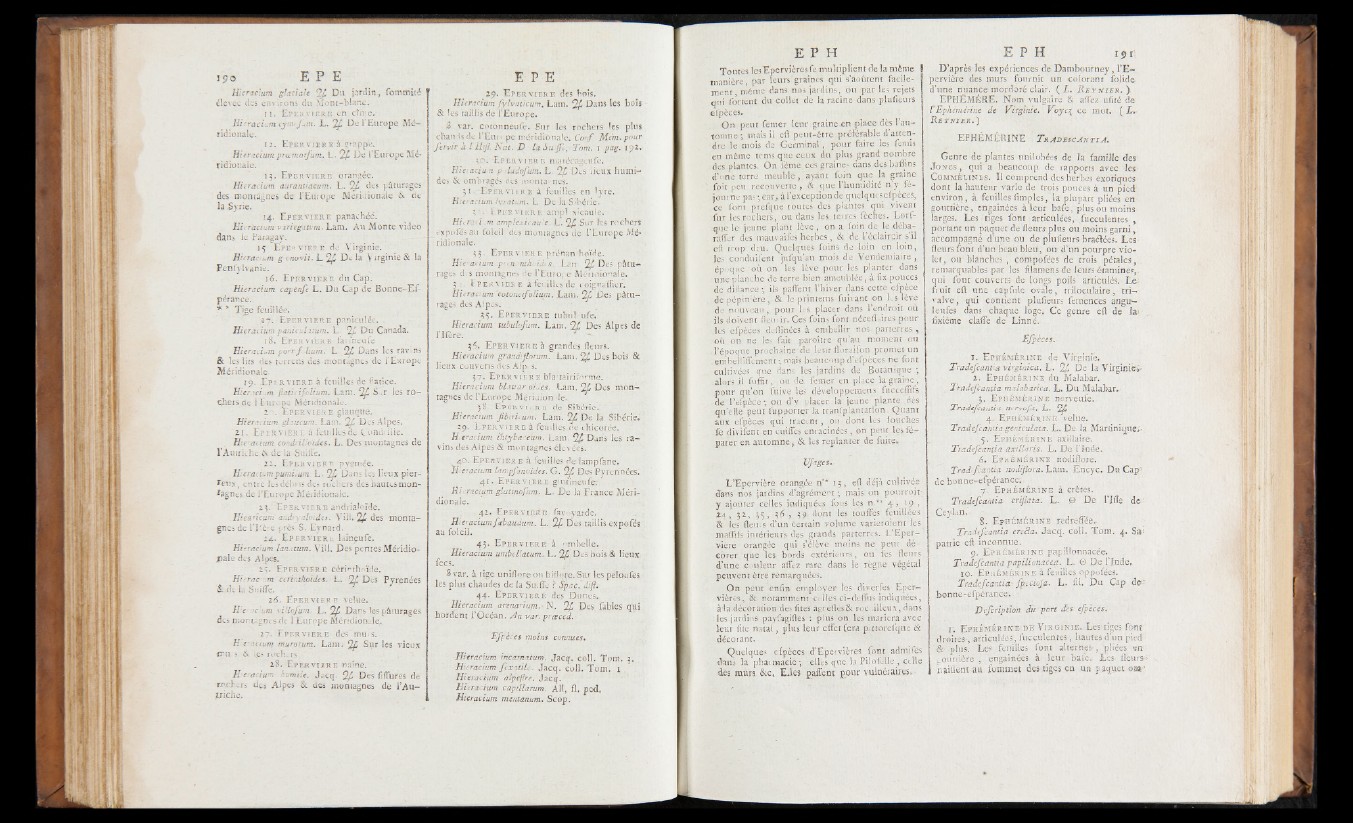 190 E P E
Hieracium glaciale ♃ Du jardin, sommité
élevée des environs du Mont-blanc.
11. EPERVIERE en cîme.
Hieracium cymosum. L. ♃ De l'Europe Mé-
ridionale.
12. EPERVIERE à grappe.
Hieracium praemorsum. L. ♃ De l'Europe Mé-
ridionale.
13. EPERVIERE orangée.
Hieracium aurantiacum. L. ♃ des pâturages
des montagnes de l'Europe Méridionale & de
la Syrie.
14. EPERVIERE panachée.
Hieracium variegatum. Lam. Au Monte video
dans le Paragay.
15 EPERVIERE de Virginie.
Hieracium gronovii. L ♃ De la Virginie & la
Pensylvanie.
16. EPERVIERE du Cap.
Hieracium capense L. Du Cap de Bonne-Es-
pérance.
* * Tige feuillée.
17. EPERVIERE paniculée.
Hieracium paniculatum. L. ♃ Du Canada.
18. EPERVIERE farineuse
Hieracium porrifolium. L. ♃ Dans les ravins
& les lits des torrens des montagnes de l'Europe
Méridionale
19. EPERVIERE à feuilles de statice.
Hieracium staticifolium. Lam. ♃ Sur les ro-
chers de l'Europe Méridionale.
20. EPERVIERE glauque.
Hieracium glaucum. Lam. ♃ Des Alpes.
21. EPERVIERE à feuilles de condrille.
Hieracium condrilloides. L. Des montagnes de
l'Autriche & de la Suisse.
22. EPERVIERE pygmée.
Hieracium pumilum. L. ♃ Dans les lieux pier-
reux, entre les débris des rochers des hautes mon-
tagnes de l'Europe Méridionale.
23. EPERVIERE andrialoïde.
Hieracium andryaloides. Vill. ♃ des monta-
gnes de l'Isère près S. Eynard.
24. EPERVIERE lainçuse.
Hieracium lanatum. Vill. Des pentes Méridio-
nale des Alpes.
25. EPERVIERE cérinthoïde.
Hieracium cerinthoides. L. ♃ Des Pyrenées
& de la Suisse.
26. EPERVIERE velue.
Hieracium villosum L. ♃ Dans les pâturages
des montagnes de l'Europe Méridionale.
27. EPERVIERE des murs.
Hieracium murorum. Lam. ♃ Sur les vieux
murs & les rochers.
28. EPERVIERE naine.
Hieracium humile. Jacq. ♃ Des fissures de
rochers des Alpes & des montagnes de l'Au-
triche.
E P E
29. EPERVIERE des bois.
Hieracium sylvaticum. Lam. ♃ Dans les bois
& les taillis de l'Europe.
á var. cotonneuse. Sur les rochers les plus
chauds de l'Europe méridionale. Conf. Mém. pour
servir à l'Hist. Nat. D la Suisse, Tom. 1 pag. 192.
30. EPERVIERE marécageuse.
Hieracium paludosum. L. ♃ Des lieux humi-
des & ombragés des montagnes.
31. EPERVIERE à feuilles en lyre.
Hieracium lyratum. L. De la Sibérie.
32. EPERVIERE amplexicaule.
Hieracium amplexicaule. L. ♃ Sur les rochers
exposés au soleil des montagnes de l'Europe Mé-
ridionale.
33. EPERVIERE prénanthoïde.
Hieracium prenanthoides. Lam. ♃ Des pâtu-
rages des montagnes de l'Europe Méridionale.
34. EPERVIERE à feuilles de coignassier.
Hieracium cotoneifolium. Lam. ♃ Des pâtu-
rages des Alpes.
35. EPERVIERE tubuleuse.
Hieracium tubulosum. Lam. ♃ Des Alpes de
l'Isère.
36. EPERVIERE à grandes fleurs.
Hieracium grandiflorum. Lam. ♃ Des bois &
lieux couverts des Alpes.
37. EPERVIERE blattariforme.
Hieracium blattarioides. Lam. ♃ Des mon-
tagnes de l'Europe Méridionale.
38. EPERVIERE de Sibérie.
Hieracium sibiricum. Lam. ♃ De la Sibérie.
39. EPERVIERE à feuilles de chicorée.
Hieracium intybaceum. Lam. ♃ Dans les ra-
vins des Alpes & montagnes élevées.
40. EPERVIERE à feuilles de lampsane.
Hieracium lampsanoides. G. ♃ Des Pyrennées.
41. EPERVIERE glutineuse.
Hieracium glutinosum. L. De la France Méri-
dionale.
42. EPERVIERE savoyarde.
Hieracium sabaudum. L. ♃ Des taillis exposés
au soleil.
43. EPERVIERE à ombelle.
Hieracium umbellatum. L. ♃ Des bois & lieux
secs.
ß var. à tige uniflore ou biflore. Sur les pelouses
les plus chaudes de la Suisse ? Spec. dist.
44. EPERVIERE des Dunes.
Hieracium arenarium. N. ♃ Des sables qui
bordent l'Océan. An var. præced.
Espèces moins connues.
Hieracium incarnatum. Jacq. coll. Tom. 3.
Hieracium saxatile. Jacq. coll. Tom. 1
Hieracium alpestre. Jacq.
Hieracium capillatum. All. fl. ped.
Hieracium montanum. Scop.
E P H
Toutes les Epervières se multiplient de la même
manière, par leurs graines qui s'aoûtent facile-
ment, même dans nos jardins, ou par les rejets
qui sortent du collet de la racine dans plusieurs
espèces.
On peut semer leur graine en place dès l'au-
tonne ; mais il est peut-être préférable d'atten-
dre le mois de Germinal, pour faire les semis
en même tems que ceux du plus grand nombre
des plantes. On sème ces graines dans des bassins
d'une terre meuble, ayant soin que la graine
soit peu recouverte, & que l'humidité n'y sé-
journe pas ; car, à l'exception de quelques espèces,
ce sont presque toutes des plantes qui vivent
sur les rochers, ou dans les terres sèches. Lors-
que le jeune plant lève, on a soin de le déba-
rasser des mauvaises herbes, & de l'éclaircir s'il
est trop dru. Quelques soins de loin en loin,
les conduisent jusqu'au mois de Vendemiaire,
époque où on les lève pour les planter dans
une planche de terre bien ameublée, à six pouces
de distance ; ils passent l'hiver dans cette espèce
de pépinière, & le printems suivant on les lève
de nouveau, pour les placer dans l'endroit où
ils doivent fleurir. Ces soins sont nécessaires pour
les espèces destinées à embellir nos parterres,
où on ne les fait paroître qu'au moment ou
l'époque prochaine de leur floraison promet un
embellissement ; mais beaucoup d'espèces ne sont
cultivées que dans les jardins de Botanique ;
alors il suffit, ou de semer en place la graine,
pour qu'on suive les développemens successifs
de l'espèce ; ou d'y placer la jeune plante dès
qu'elle peut supporter la transplantation. Quant
aux espèces qui tracent, ou dont les souches
se divisent en cuisses enracinées, on peut les sé-
parer en automne, & les replanter de suite.
Usages.
L'Epervière orangée n° 13, est déjà cultivée
dans nos jardins d'agrément ; mais on pourroit
y ajouter celles indiquées sous les nos 4, 19,
24, 32, 35, 36, 39 dont les touffes feuillées
& les fleurs d'un certain volume varieroient les
massifs intérieurs des grands parterres. L'Eper-
vière orangée qui s'élève moins ne peut dé-
corer que les bords extérieurs, ou ses fleurs
d'une couleur assez rare dans le règne végétal
peuvent être remarquées.
On peut enfin employer les diverses Eper-
vières, & notamment celles ci-dessus indiquées,
à la décoration des sites agrestes & rocailleux, dans
les jardins paysagistes : plus on les mariera avec
leur site natal, plus leur effet sera pittoresque &
décorant.
Quelques espèces d'Epervières sont admises
dans la pharmacie ; elles que la Piloselle, celle
des murs &c. Elles passent pour vulnéraires.
E P H 191
D'après les expériences de Dambourney, l'E-
pervière des murs fournit un colorant solide
d'une nuance mordoré clair. ( L. REYNIER. )
EPHÉMÈRE. Nom vulgaire & assez usité de
l'Ephémérine de Virginie. Voyez ce mot. ( L.
REYNIER. )
EPHÉMÉRINE TRADESCANTIA.
Genre de plantes unilobées de la famille des
JONCS, qui a beaucoup de rapports avec les
COMMÉLINES. Il comprend des herbes exotiques
dont la hauteur varie de trois pouces à un pied
environ, à feuilles simples, la plupart pliées en
gouttière, engaînées à leur base, plus ou moins
larges. Les tiges sont articulées, succulentes,
portant un paquet de fleurs plus ou moins garni,
accompagné d'une ou de plusieurs bractées. Les
fleurs sont d'un beau bleu, ou d'un pourpre vio-
let, ou blanches, composées de trois pétales,
remarquables par les filamens de leurs étamines,
qui sont couverts de longs poils articulés. Le
fruit est une capsule ovale, triloculaire, tri-
valve, qui contient plusieurs semences angu-
leuses dans chaque loge. Ce genre est de la
sixième classe de Linné.
Espèces.
1. EPHÉMÉRINE de Virginie.
Tradescantia virginica. L. ♃ De la Virginie.
2. EPHÉMÉRINE du Malabar.
Tradescantia malabarica. L. Du Malabar.
3. EPHÉMÉRINE nerveuse.
Tradescantia nervosa. L. ♃
4. EPHÉMÉRINE velue.
Tradescantia geniculata. L. De la Martinique.
5. EPHÉMÉRINE axillaire.
Tradescantia axillaris. L. De l'Inde.
6. EPHÉMÉRINE nodiflore.
Tradescantia nodiflora. Lam. Encyc. Du Cap
de bonne-espérance.
7. EPHÉMÉRINE à crêtes.
Tradescantia cristata. L. ☉ De l'Isle de
Ceylan.
8. EPHÉMÉRINE redressée.
Tradescantia erecta. Jacq. coll. Tom. 4. Sa
patrie est inconnue.
9. EPHÉMÉRINE papillonnacée.
Tradescantia papilionacea. L. ☉ De l'Inde.
10. EPHÉMÉRINE à feuilles opposées.
Tradescantia speciosa. L. fil. Du Cap de
bonne-espérance.
Description du port des espèces.
1. EPHÉMÉRINE DE VIRGINIE. Les tiges sont
droites, articulées, succulentes, hautes d'un pied
& plus. Les feuilles sont alternes, pliées en
gouttière, engaînées à leur base. Les fleurs
naissent au sommet des tiges en un paquet om-